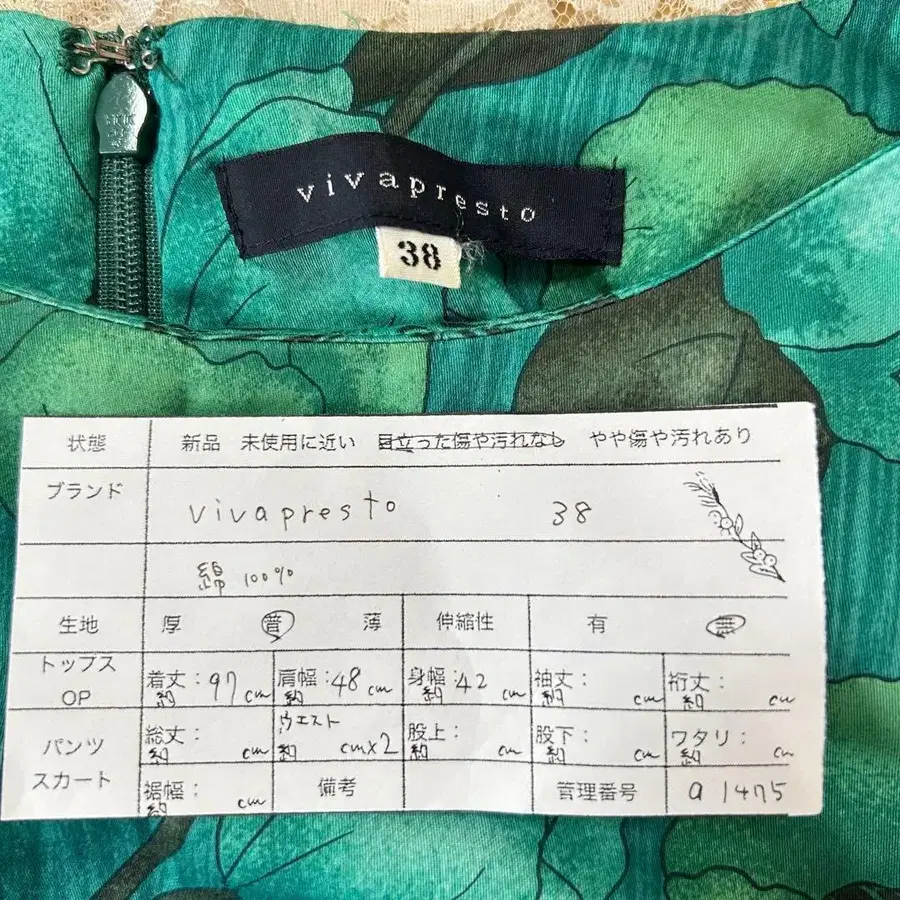 vivapresto
38
状態 新品 未使用に近い 目立った傷や汚れなし やや傷や汚れあり
ブランド vivapresto 38
綿 100%
生地 厚 普 薄 伸縮性 有 無
トップス OP 着丈:約97cm 肩幅:約48cm 身幅:約42cm 袖丈:約 cm 裄丈:約 cm
パンツ スカート 総丈:約 cm ウエスト 約 cm×2 股上:約 cm 股下:約 cm ワタリ:約 cm
裾幅:約 cm 備考 管理番号 a1475